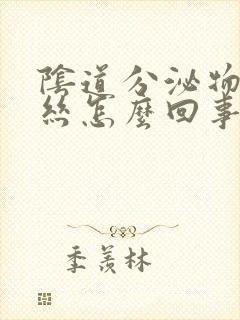 陰道分泌物
絲怎麼回事
季羨林